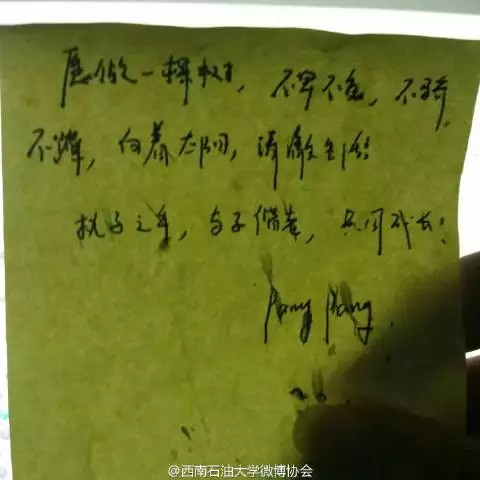 愿做一棵树，不卑不亢，不骄
不躁，向着太阳，清澈
执子之手，与子偕老，共同成长！
Pang Pang.
@西南石油大学微博协会